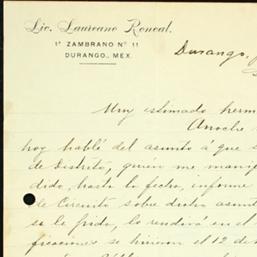 Lic. Laureano Roncal.
1ª ZAMBRANO Nº 11
DURANGO, MEX.
Durango,
Muy estimado herm
Anoche
hoy hablé del asunto á que s
de Distrito, quien me mani
dido, hasta la fecha, informe
de Circuito sobre dicho asunt
se le pida, lo rendirá en el
se hicieron el 12 de